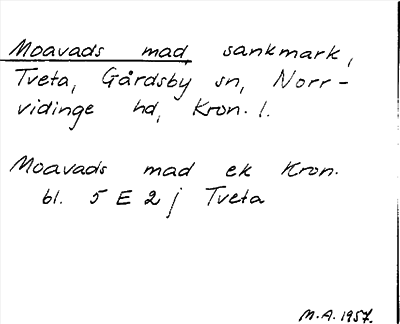 Moavads mad, sankmark,
Tveta, Gårdsby sn, Norr-
vidinge hd, Kron. l.
Moavads mad ek Kron.
bl. 5 E 2 j Tveta
M.A. 1957.